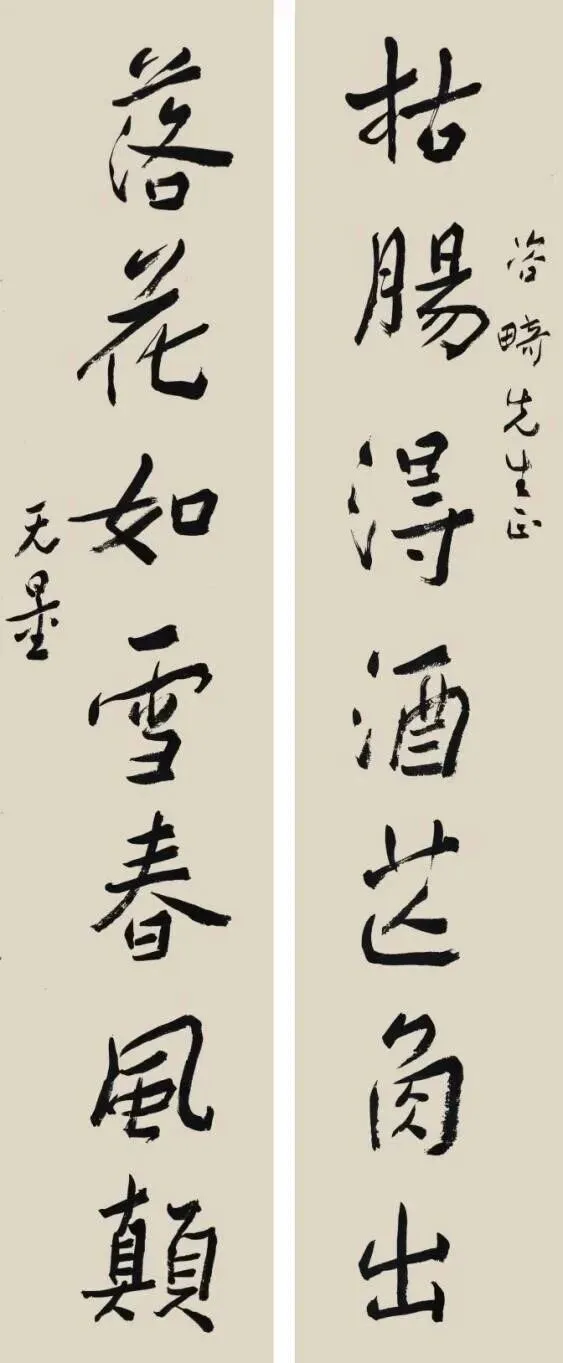 畸先生正
枯腸得酒芒角出
落花如雪春風顛
无量